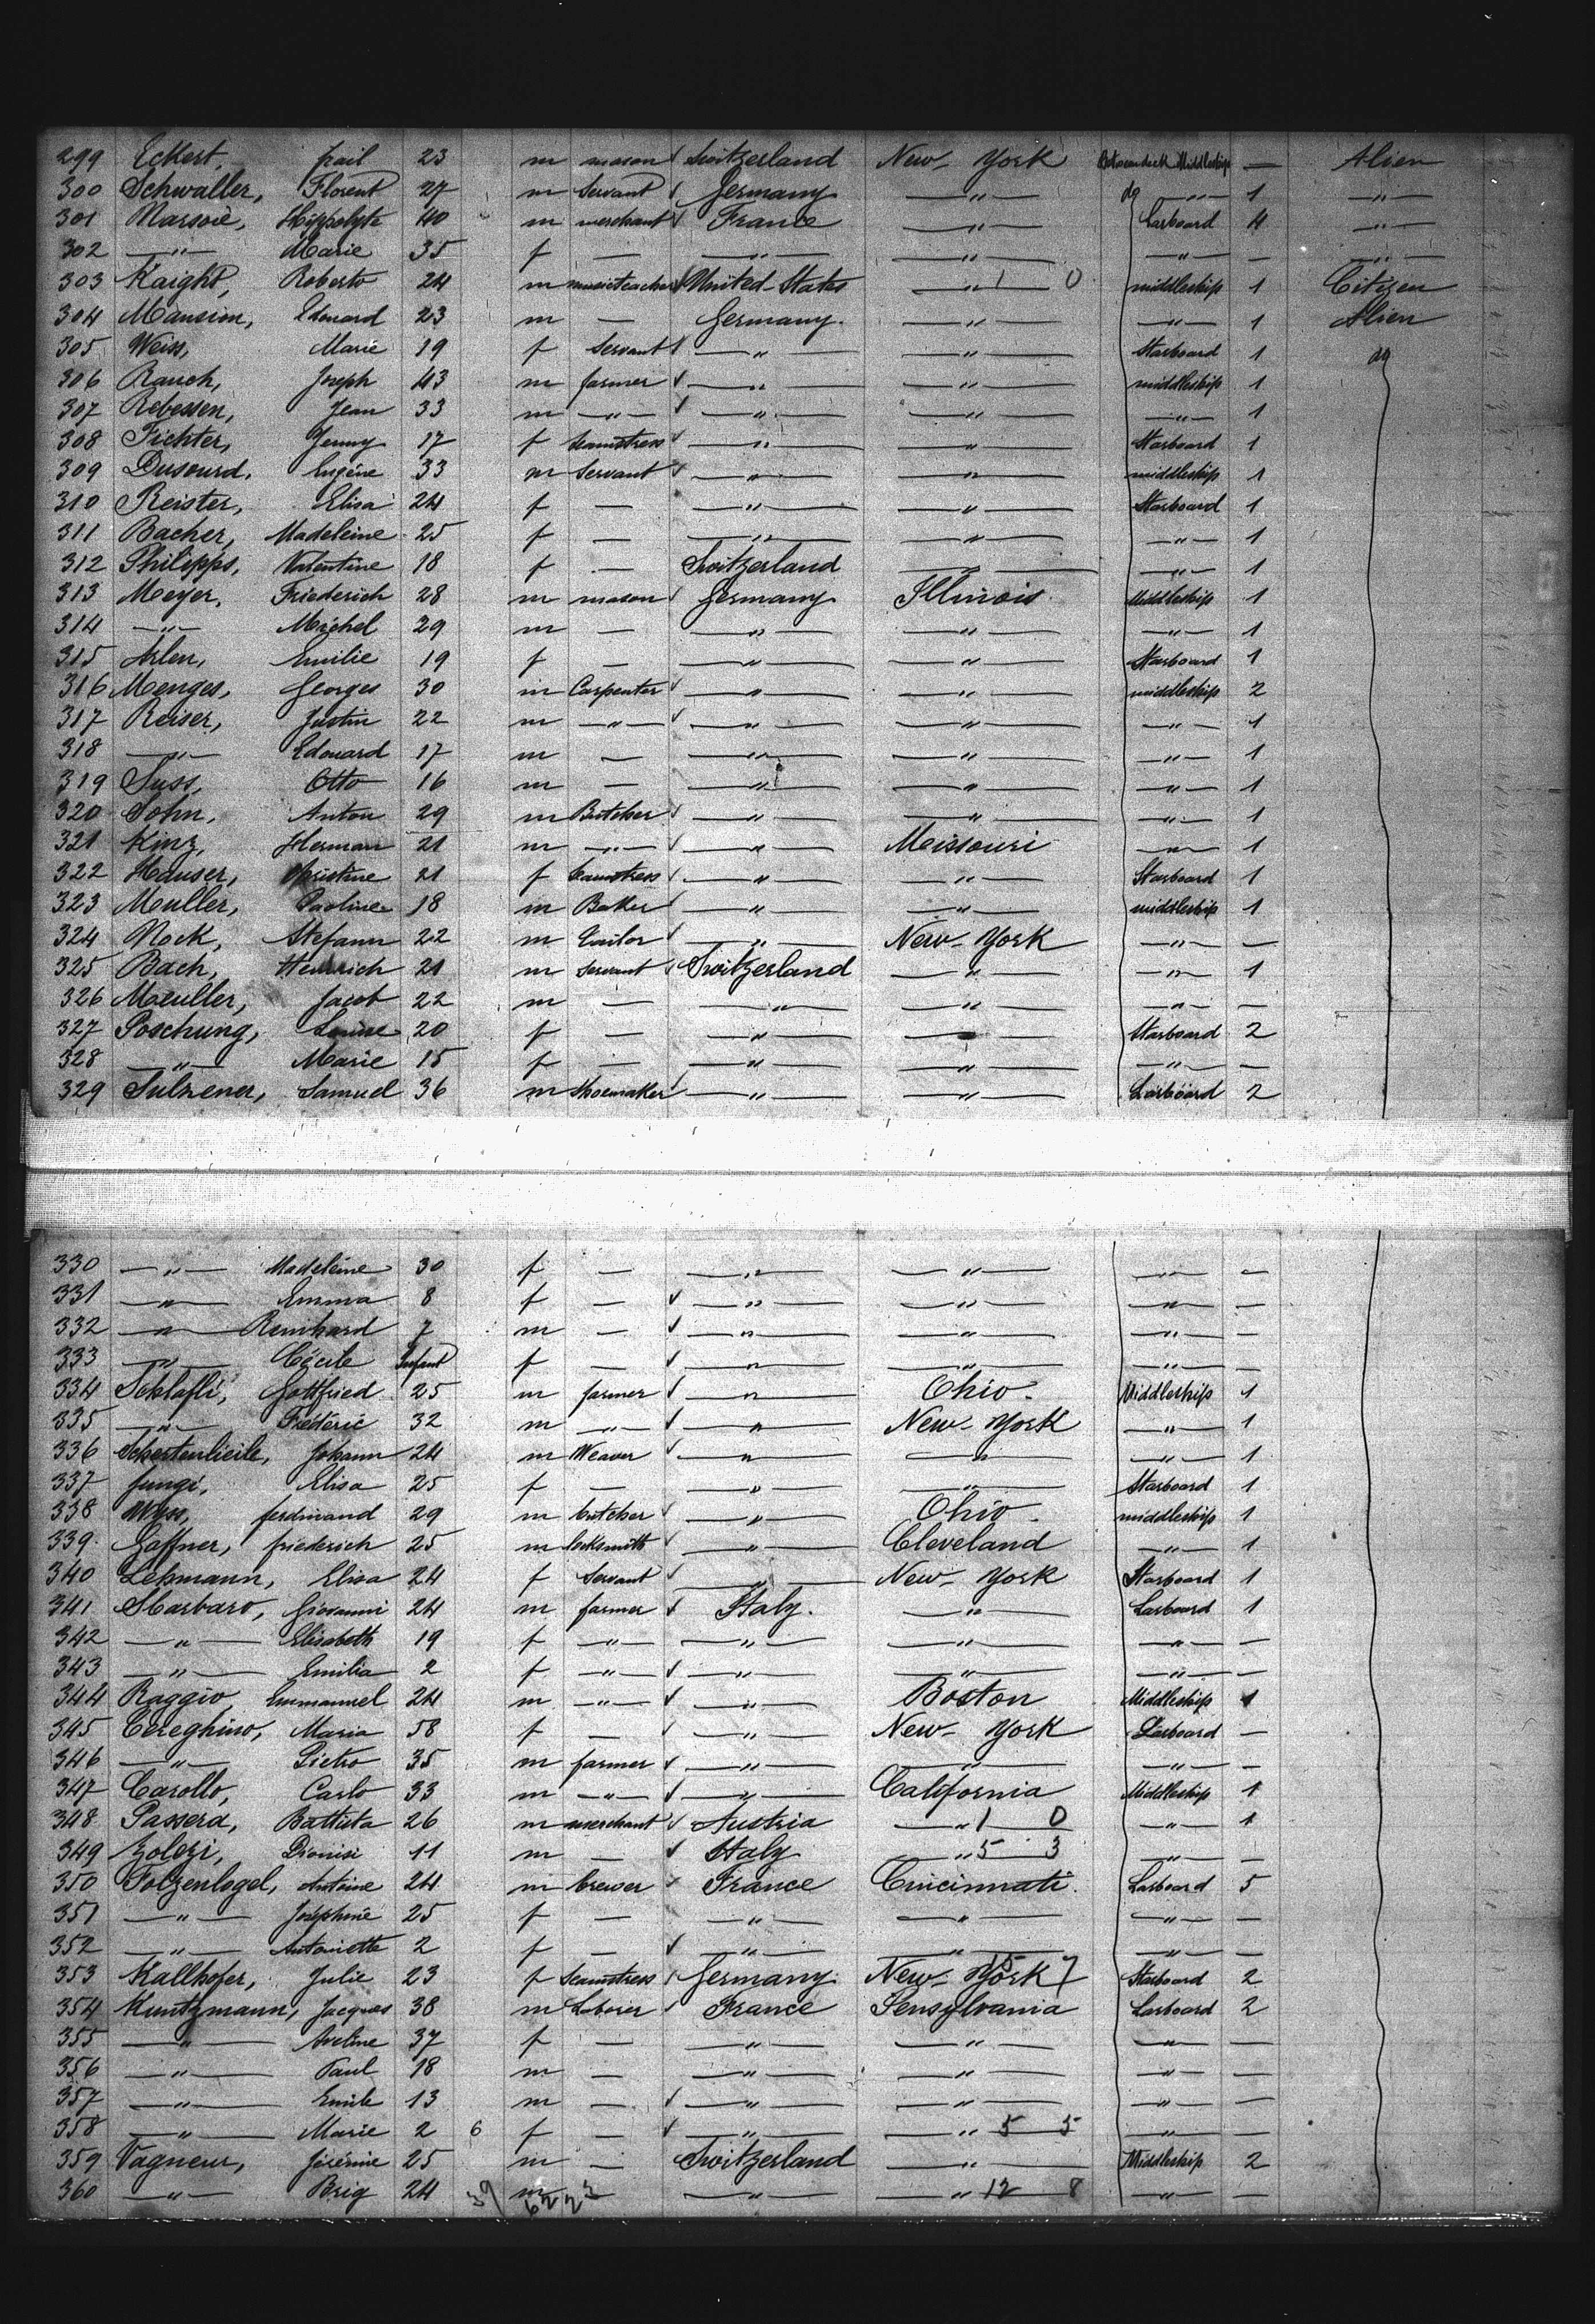 299 Eckert, frail 23 m mason ✓ Switzerland New-York Betweendeck Middleship — Alien
300 Schwaller, Florent 27 m Servant ✓ Germany —"— do —"— 1 —"—
301 Marsoie, Hippolyte 40 m merchant ✓ France —"— Larboard 4 —"—
302 —"— Marie 35 f — —"— —"— —"— — —"—
303 Kaight, Roberto 24 m musicteacher ✓ United-States —"— 1 0 middleship 1 Citizen
304 Mansion, Edouard 23 m — Germany. —"— —"— 1 Alien
305 Weiss, Marie 19 f Servant ✓ —"— —"— Starboard 1 do
306 Rauch, Joseph 43 m farmer ✓ —"— —"— middleship 1
307 Rebessen, Jean 33 m —"— ✓ —"— —"— —"— 1
308 Fichter, Jenny 17 f Seamstress ✓ —"— —"— Starboard 1
309 Dusourd, Eugéne 33 m Servant ✓ —"— —"— middleship 1
310 Reister, Elisa 24 f — —"— —"— Starboard 1
311 Bacher, Madeleine 25 f — —"— —"— —"— 1
312 Philipps, Valentine 18 f — Switzerland —"— —"— 1
313 Meyer, Friederich 28 m mason ✓ Germany Illinois Middleship 1
314 —"— Michel 29 m — —"— —"— —"— 1
315 Arlen, Emilie 19 f — —"— —"— Starboard 1
316 Menges, Georges 30 m Carpenter ✓ —"— —"— middleship 2
317 Reiser, Justin 22 m —"— ✓ —"— —"— —"— 1
318 —"— Edouard 17 m — —"— —"— —"— 1
319 Suss, Otto 16 m — —"— —"— —"— 1
320 Sohn, Anton 29 m Butcher ✓ —"— —"— —"— 1
321 Kinz, Herman 21 m —"— ✓ —"— Meissouri —"— 1
322 Hauser, Christine 21 f Seamstress ✓ —"— —"— Starboard 1
323 Muller, Pauline 18 m Baker ✓ —"— —"— middleship 1
324 Nock, Stefann 22 m Tailor ✓ —"— New-York —"— —
325 Bach, Heinrich 21 m Servant ✓ Switzerland —"— —"— 1
326 Maeuller, Jacob 22 m — —"— —"— —"— —
327 Poschung, Louise 20 f — —"— —"— Starboard 2
328 —"— Marie 15 f — —"— —"— —"— —
329 Sulzener, Samuel 36 m Shoemaker ✓ —"— —"— Larboard 2
330 —"— Madeleine 30 f — —"— —"— —"— —
331 —"— Emma 8 f — ✓ —"— —"— —"— —
332 —"— Reinhard 7 m — ✓ —"— —"— —"— —
333 —"— Cécile Infant f — ✓ —"— —"— —"— —
334 Schlafli, Gottfried 25 m farmer ✓ —"— Ohio. Middleship 1
335 —"— Fréderic 32 m —"— ✓ —"— New-York —"— 1
336 Schertenlieile, Johann 24 m Weaver ✓ —"— —"— —"— 1
337 Jungi, Elisa 25 f — —"— —"— Starboard 1
338 Wyss, ferdinand 29 m butcher ✓ —"— Ohio. middleship 1
339. Gaffner, friederich 25 m locksmith ✓ —"— Cleveland —"— 1
340 Lehmann, Elisa 24 f Servant ✓ —"— New-York Starboard 1
341 Sbarbaro, Giovanni 24 m farmer ✓ Italy. —"— Larboard 1
342 —"— Elisabeth 19 f —"— —"— —"— —"— —
343 —"— Emilia 2 f —"— ✓ —"— —"— —"— —
344 Raggio Emmanuel 24 m —"— ✓ —"— Boston Middleship 1
345 Cereghino, Maria 58 f — ✓ —"— New-York Larboard —
346 —"— Pietro 35 m farmer ✓ —"— —"— —"— —
347 Carollo, Carlo 33 m —"— ✓ —"— California Middleship 1
348 Passera, Battista 26 m merchant ✓ Austria —"— 1 0 —"— 1
349 Zolezi, Dionisi 11 m — ✓ Italy —"— 5 3 —"— —
350 Folzenlogel, Antoine 24 m brewer ✓ France Cincinnati. Larboard 5
351 —"— Joséphine 25 f — —"— —"— —"— —
352 —"— Antoinette 2 f — ✓ —"— —"— —"— —
353 Kallhofer, Julie 23 f Seamstress ✓ Germany New-York 15 7 Starboard 2
354 Kuntzmann, Jacques 38 m Laborer ✓ France Pensylvania Larboard 2
355 —"— Aveline 37 f — —"— —"— —"— —
356 —"— Paul 18 m — —"— —"— —"— —
357 —"— Emile 13 m — ✓ —"— —"— —"— —
358 —"— Marie 2 6 f — ✓ —"— —"— 5 5 —"— —
359 Vagneur, Jérémie 25 m — Switzerland —"— Middleship 2
360 —"— Brig 24 39 m 62 23 —"— —"— 12 8 —"— —